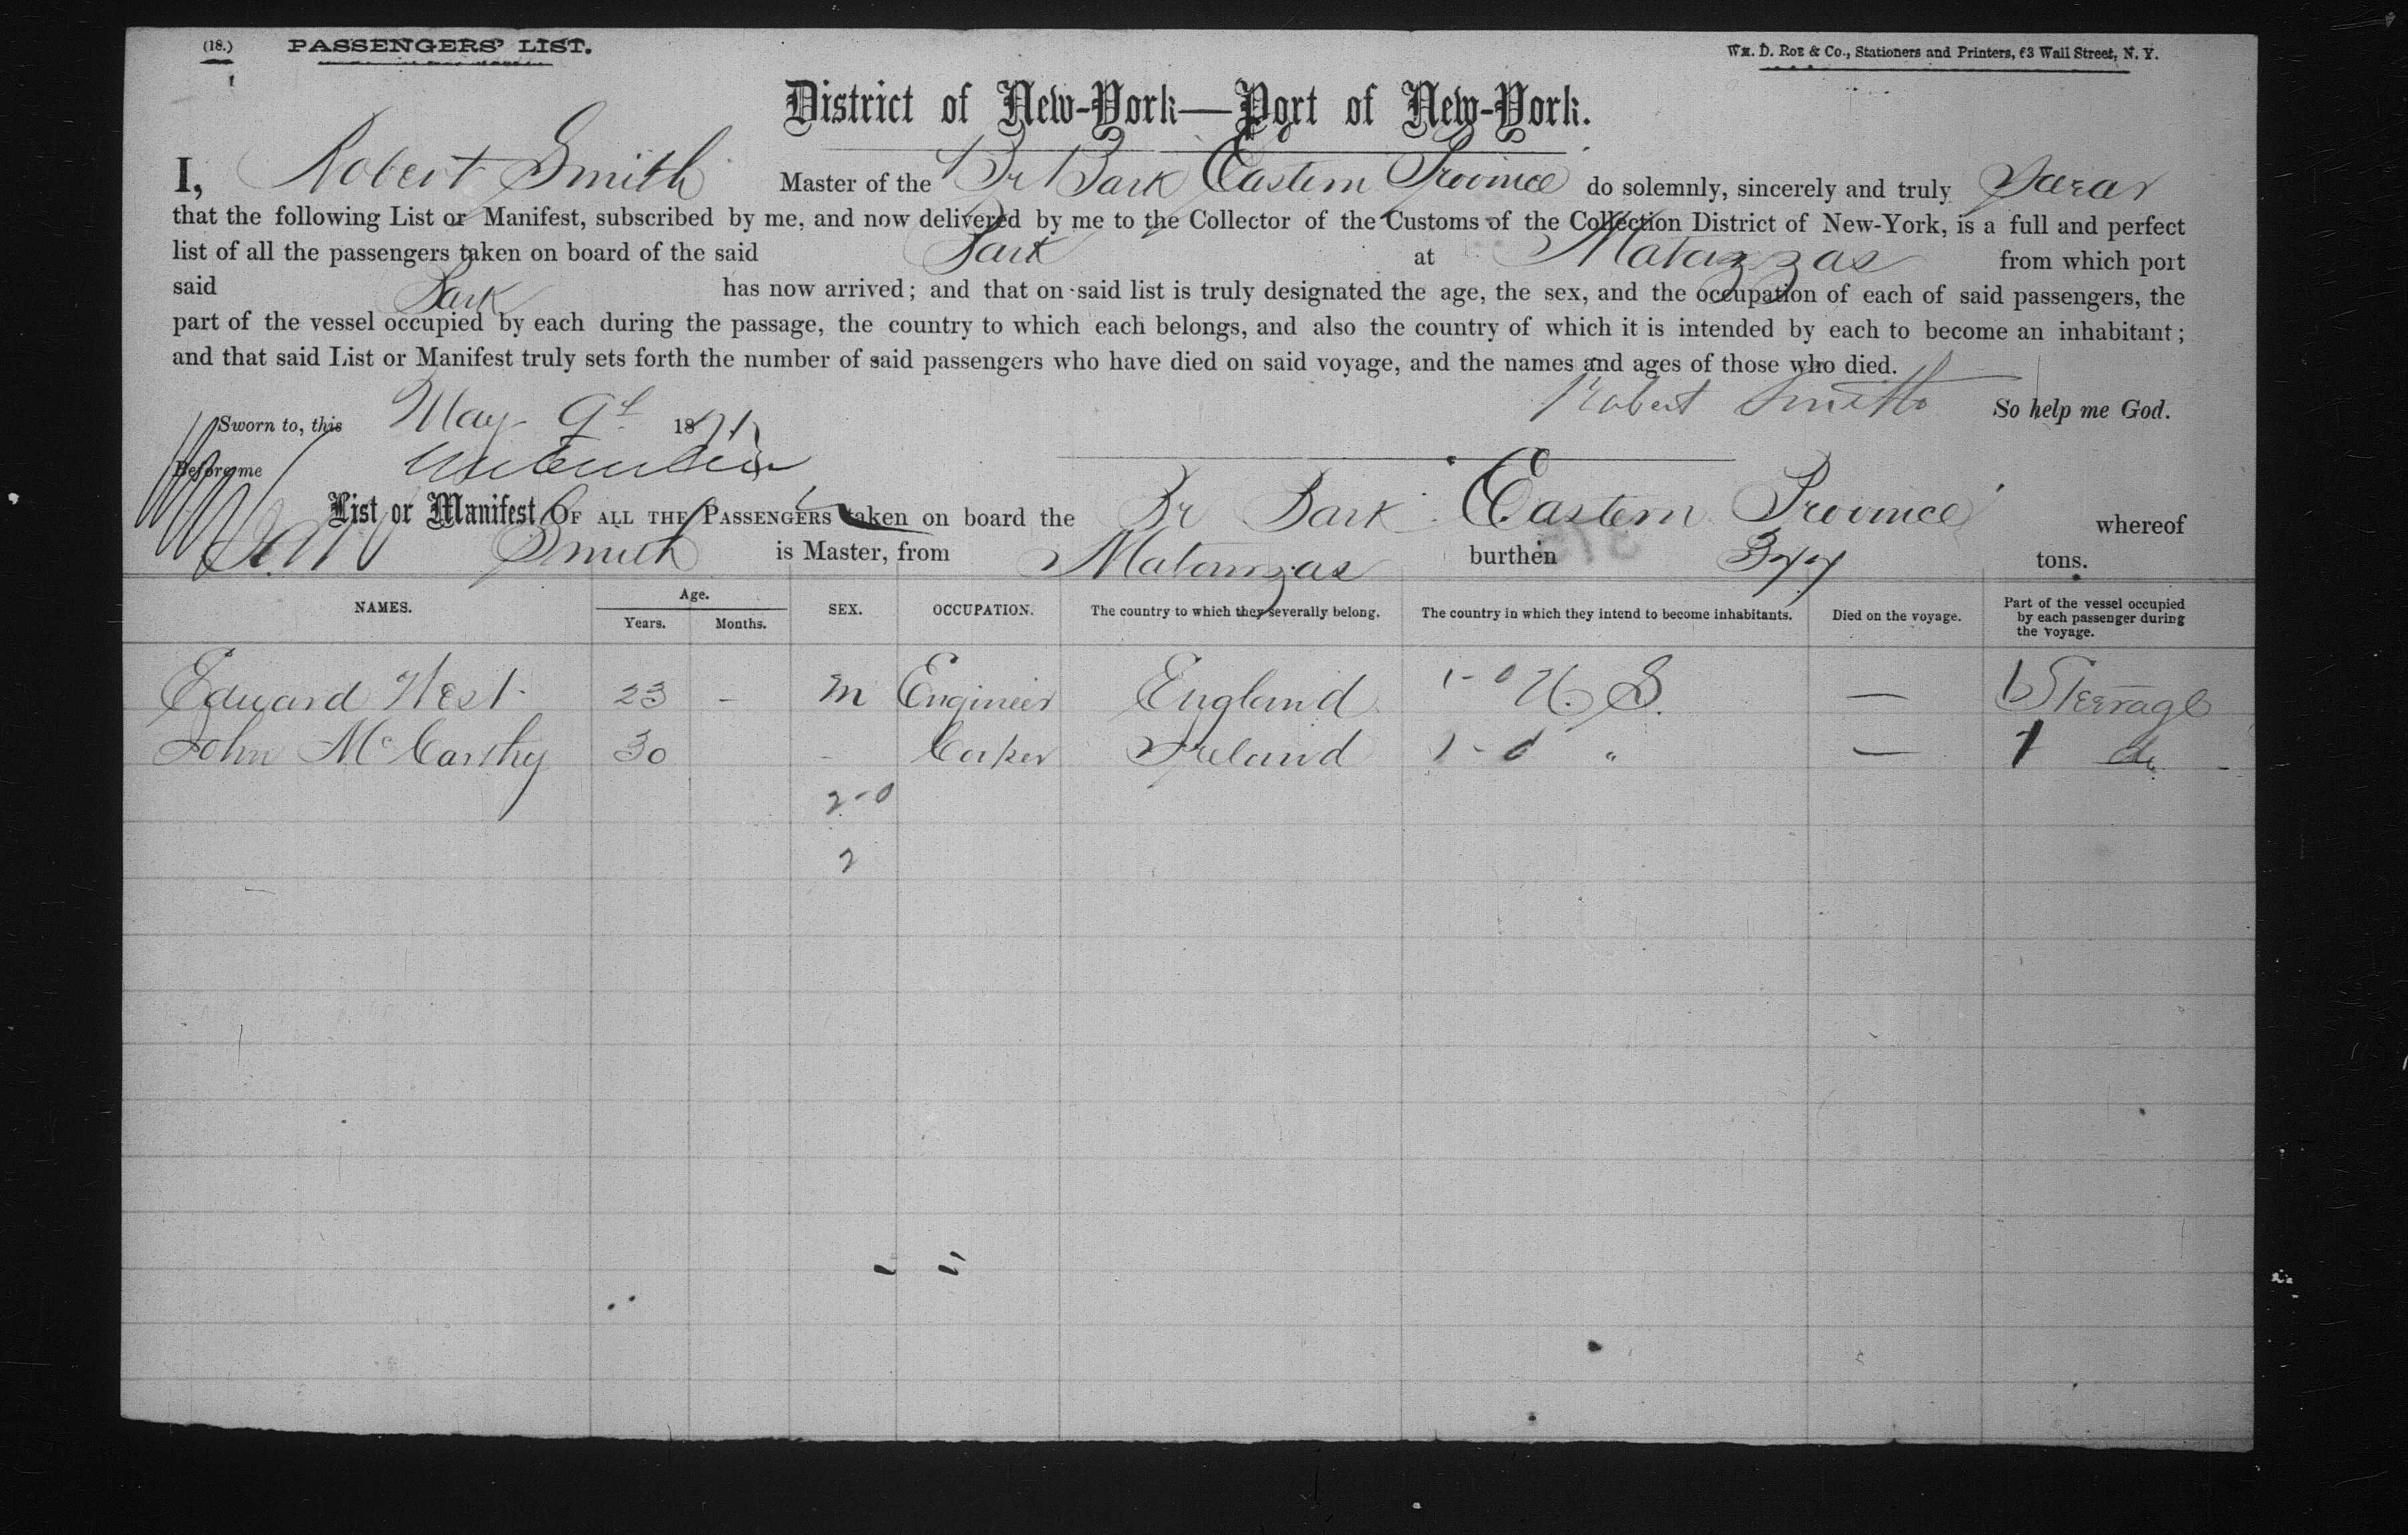 (18.) PASSENGERS' LIST. Wm. D. Roe & Co., Stationers and Printers, 63 Wall Street, N. Y.
1
District of New-York—Port of New-York.
I, Robert Smith Master of the Br Bark Eastern Province do solemnly, sincerely and truly swear
that the following List or Manifest, subscribed by me, and now delivered by me to the Collector of the Customs of the Collection District of New-York, is a full and perfect
list of all the passengers taken on board of the said Bark at Matanzas from which port
said Bark has now arrived; and that on said list is truly designated the age, the sex, and the occupation of each of said passengers, the
part of the vessel occupied by each during the passage, the country to which each belongs, and also the country of which it is intended by each to become an inhabitant;
and that said List or Manifest truly sets forth the number of said passengers who have died on said voyage, and the names and ages of those who died.
Robert Smith So help me God.
Sworn to, this May 9t 1871
Before me
List or Manifest OF ALL THE PASSENGERS taken on board the Br Bark Eastern Province whereof
Smith is Master, from Matanzas burthen 377 tons.
NAMES. Age. Years. Months. SEX. OCCUPATION. The country to which they severally belong. The country in which they intend to become inhabitants. Died on the voyage. Part of the vessel occupied by each passenger during the voyage.
Edward West 23 - m Engineer England 1-0 U. S. — 1 Steerage
John McCarthy 30 - Ireland 1-0 " — 1 do
2-0
2